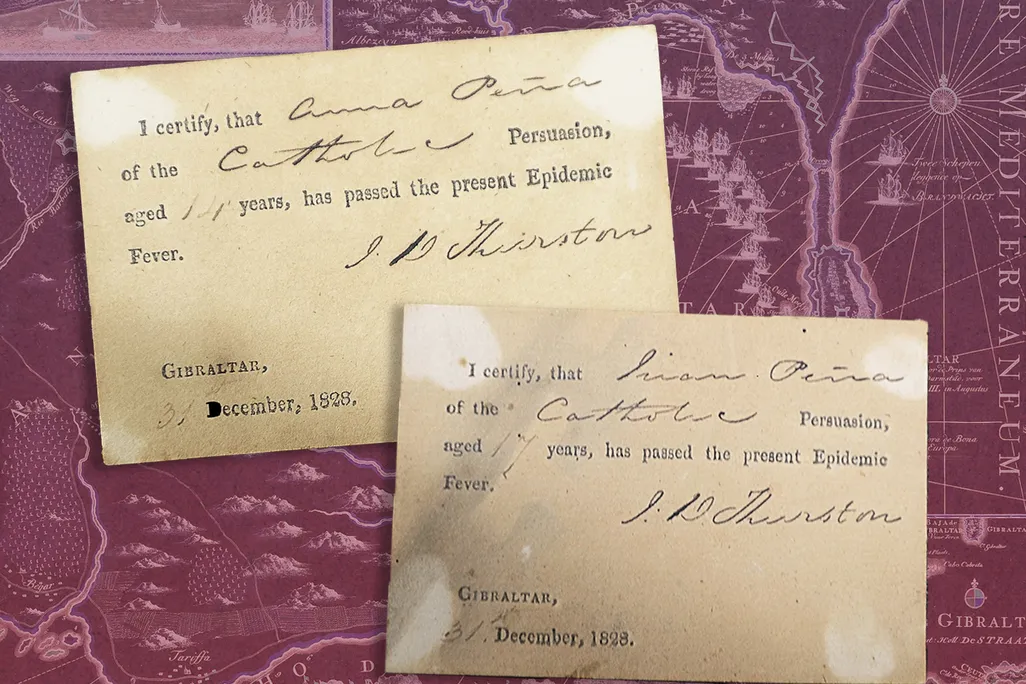 I certify, that Anna Peña
of the Catholic Persuasion,
aged 14 years, has passed the present Epidemic
Fever.
J. D Thurston
GIBRALTAR,
31 December, 1828.
I certify, that Juan Peña
of the Catholic Persuasion,
aged 17 years, has passed the present Epidemic
Fever.
J. D Thurston
GIBRALTAR,
31. December, 1828.
Tariffa
RE MEDITERRANEUM.
GIBRALT